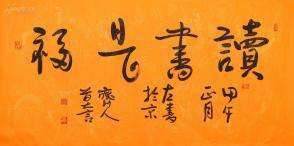 讀書是福
甲午
正月
左書
於京
齊人